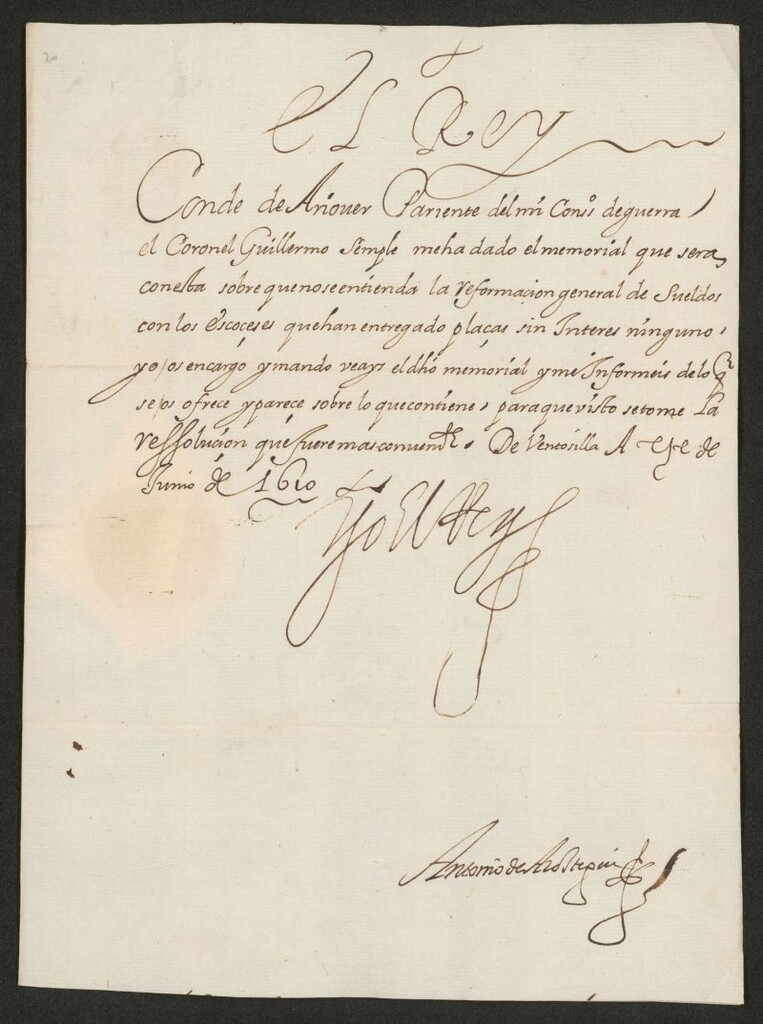 20
El Rey
Conde de Añover Pariente del mi Cons.º de guerra
el Coronel Guillermo Semple me ha dado el memorial que sera
con esta sobre que no se entienda la reformacion general de Sueldos
con los Escoceses que han entregado plaças sin Interes ninguno,
yo os encargo y mando veays el dho memorial y me Informeis de lo q
se os ofrece y parece sobre lo que contiene, para que visto se tome La
ressolucion que fuere mas conveni.te. De Ventosilla A de
Junio de 1610
Yo El Rey
Antonio de Aroztegui